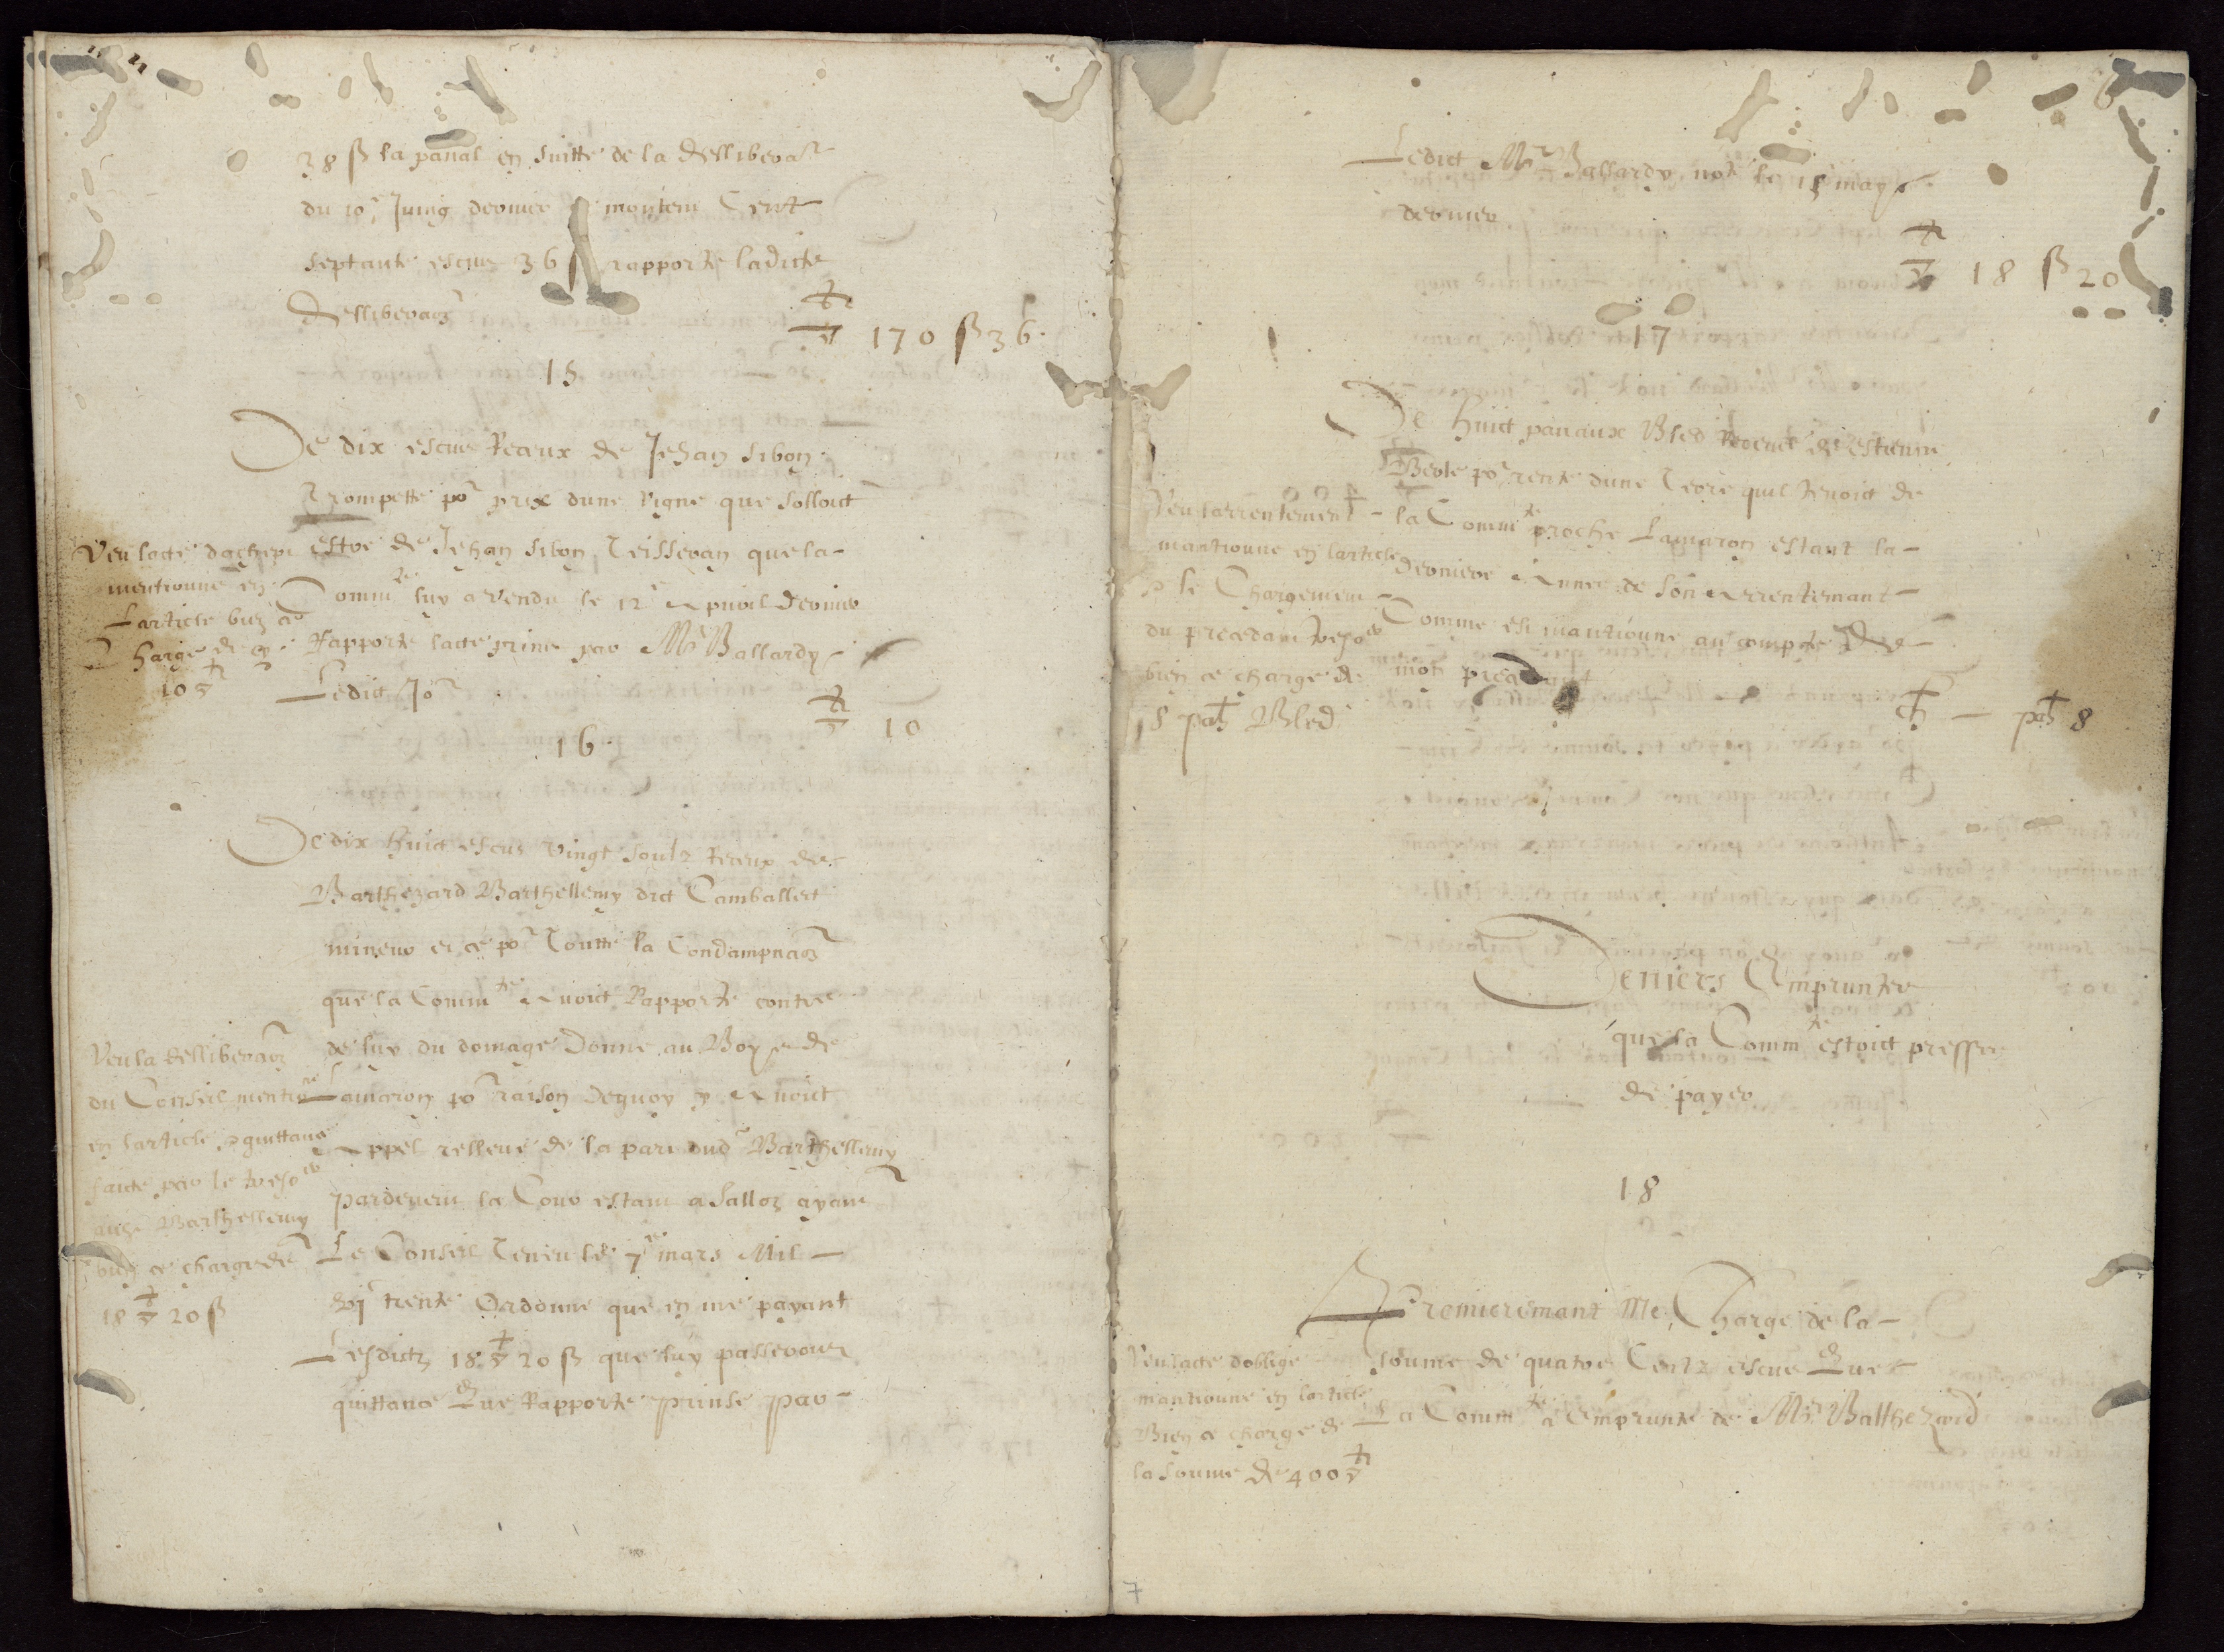 38 ß la panal en suitte de la dellibera^on
du 10e Juing dernier montent Cent
septante escus 36 ß rapporte ladicte
dellibera^on
170 ß 36
15
De dix escus Receux de Jehan Sibon
Trompette po^r prix dune vigne que solloict
estre de Jehan Sibon Teisseran que la
Comm^te luy a vendu le 12e Apvril dernier
Rapporte lacte prins par M^e Ballardy
Ledict Jo^r
10
Veu lacte dachept
mentionne en
Larticle bien ce
Charge de
10
16
De dix huict escus vingt soulz Receux de
Barthezard Barthellemy dict Camballet
mineur et ce po^r Toutte la Condampna^on
que la Comm^te Avoict Rapporte contre
de luy du domage Donne au Boys de
Lamaron po^r raison dequoy y Avoict
Appel relleve de la part dud Barthellemy
pardevent la Cour estant a Sallon ayant
Le Conseil Tenu le 7e mars Mil
trente Ordonne que en me payant
Lesdictz 18 20 ß que luy passerois
quittance Que Rapporte prinse par
Veu la dellibera^on
du Conseil mention^ne
en larticle & quittance
faicte par le treso^er
Barthellemy
bien ce charge de
18 20 ß
6
Ledict M^e Ballardy not^e le 15 may
dernier
18 ß 20
17
De huict panaux Bled Receux de Estienne
po^r rente dune Terre quil tenoict de
la Comm^te proche Lamaron estant la
derniere Annee de son Arrentemant
Comme est mantionne au compte de
mon precedant
pa^x 8
Veu larrentement
mantionne en larticle
& le Chargement
du precedant treso^er
bien ce charge de
8 pa^x Bled
Deniers Emprunter
que la Comm^te estoict presser
de payer
18
Premieremant Me Charge de la
soume de quatre Centz escus Que
La Comm^te a Emprunte de M^e Balthezard
Veu lacte doblige
mantionne en larticle
Bien ce charge de
la soume de 400
7